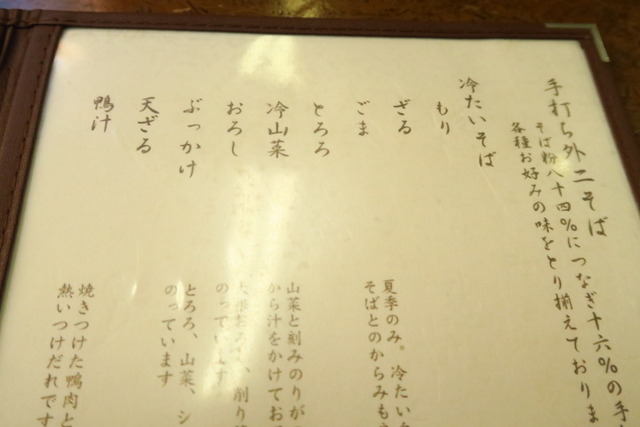 手打ち外二そば
そば粉八十四%につなぎ十六%の手
各種お好みの味をとり揃えておりま
冷たいそば
もり
ざる
ごま
とろろ
冷山菜
おろし
ぶっかけ
天ざる
鴨汁
夏季のみ。冷たい
そばとのからみも
山菜と刻みのりが
から汁をかけてお
、削り
のっています
とろろ、山菜、シ
のっています
焼きつけた鴨肉と
熱いつけだれです